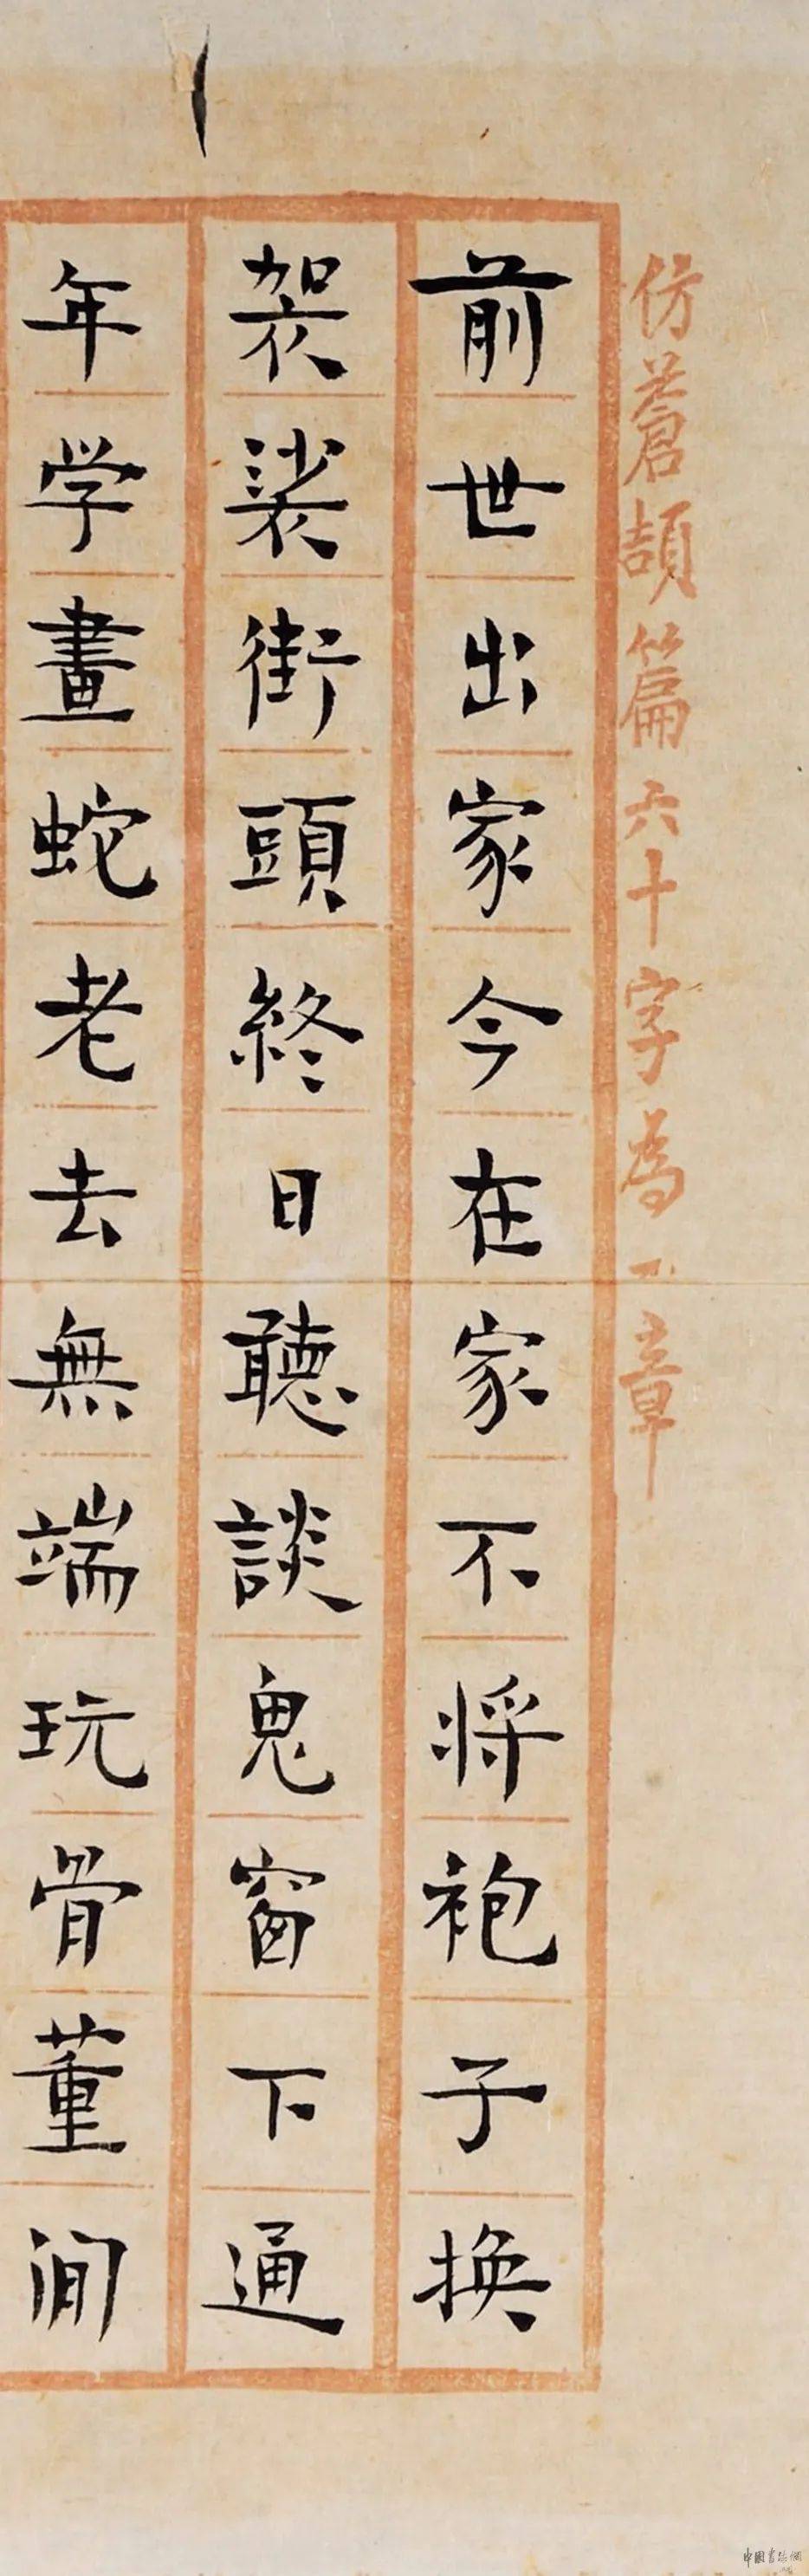 仿蒼頡篇六十字為一章
前世出家今在家不将袍子換
袈裟街頭終日聽談鬼窗下通
年学畫蛇老去無端玩骨董閒